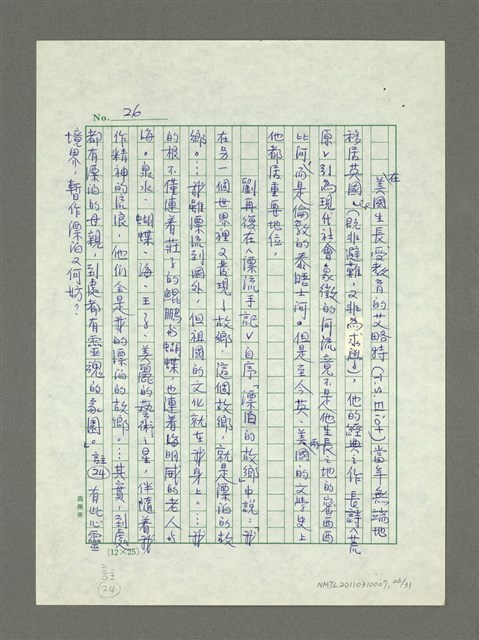 No. 26
在美國生長受教育的艾略特(T.S.Eliot)當年無端地
移居英國(既非避難，又非為求學)，他的經典之作長詩〈荒
原〉引為現代社會象徵的河流竟不是他生長之地的密西西
比河，而是倫敦的泰晤士河。但是至今英、美兩國的文學史上
他都居重要地位。
劉再復在〈漂流手記〉自序「漂泊的故鄉」中說：「我
在另一個世界裡又發現了故鄉，這個故鄉，就是漂泊的故
鄉。…我雖漂流到國外，但祖國的文化就在我身上。…我
的根不僅連着莊子的鯤鵬與蝴蝶，也連着海明威的老人與
海。泉水、蝴蝶、海、王子、美麗的藝術之星，伴隨着我
作精神的流浪，他們全是我的漂泊的故鄉。…其實，到處
都有漂泊的母親，到處都有靈魂的家園。」註㉔ 有此心靈
境界，暫作漂泊又何妨？
(12×25)
註㉔
NMTL20110310007, 26/31